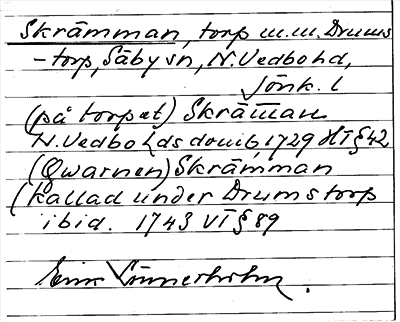 Skrämman, torp m.m. Drums
-torp, Säby sn, N. Vedbo hd,
Jönk. l
(på torpet) Skräman
N. Vedbo hds domb, 1729 HT § 42
(Qwarnen) Skrämman
(kallad under Drumstorp
ibid. 1743 VT § 89
Linnerholm.